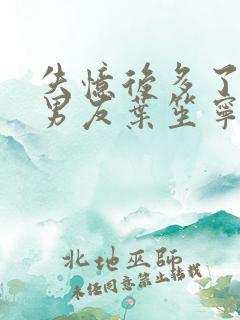 失憶後多了
男友葉笙寧
北地巫師
未经同意禁止转载